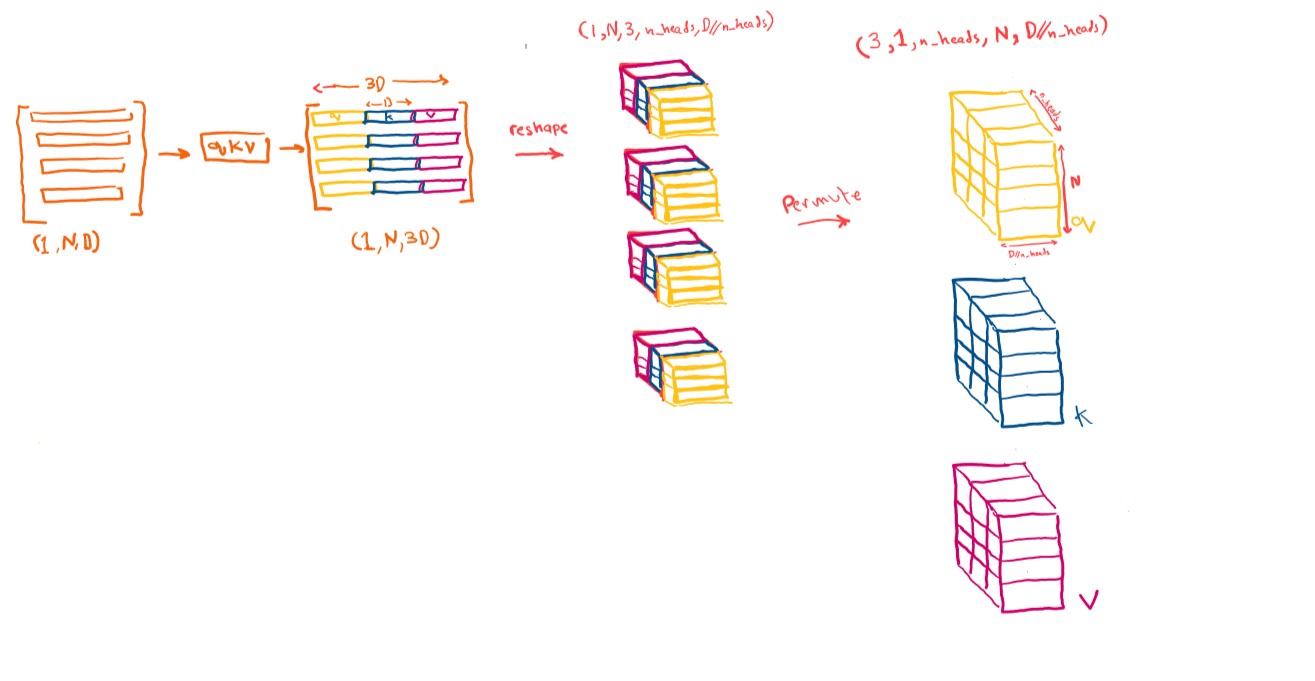 (1,N,D)
qkv
3D
D
q k v
(1,N,3D)
reshape
(1,N,3,n_heads,D//n_heads)
Permute
(3,1,n_heads,N,D//n_heads)
n_heads
N
q
D//n_heads
k
v